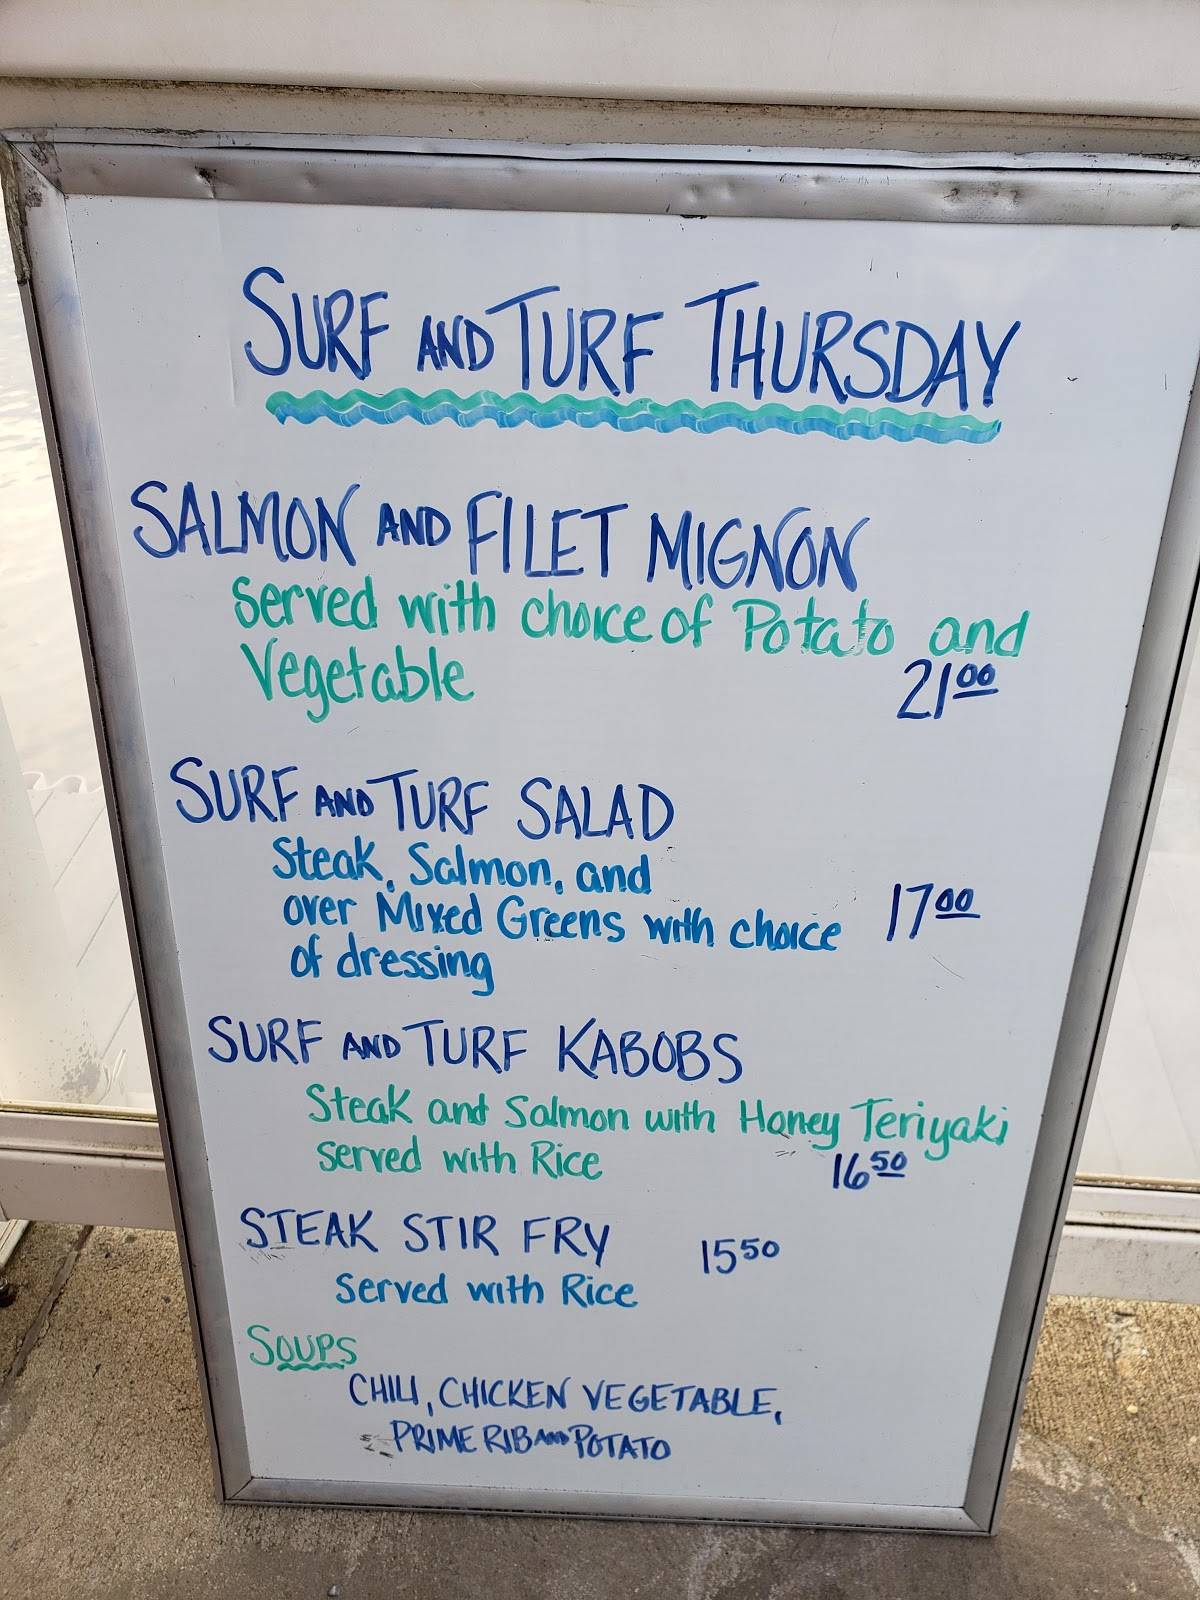 SURF AND TURF THURSDAY
SALMON AND FILET MIGNON
Served with choice of Potato and
Vegetable
21 00
SURF AND TURF SALAD
Steak, Salmon, and
over Mixed Greens with choice
of dressing
17 00
SURF AND TURF KABOBS
Steak and Salmon with Honey Teriyaki
Served with Rice
16 50
STEAK STIR FRY 15 50
Served with Rice
SOUPS
CHILI, CHICKEN VEGETABLE,
PRIME RIB AND POTATO